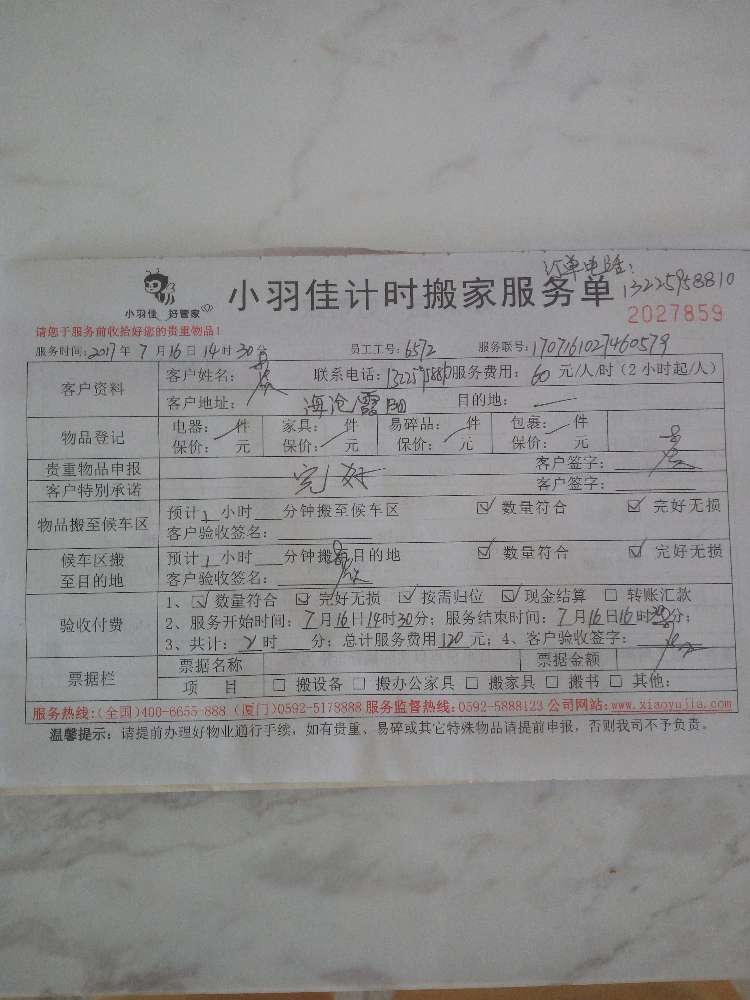 订单电话:
13225958810
小羽佳 好管家
小羽佳计时搬家服务单
2027859
请您于服务前收拾好您的贵重物品!
服务时间:2017年7月16日14时30分 员工工号:6572 服务联号:1707161027460579
客户资料 客户姓名: 联系电话: 服务费用:60元/人/时(2小时起/人)
客户地址:海沧霞阳 目的地:
物品登记 电器: 件 家具: 件 易碎品: 件 包裹: 件
保价: 元 保价: 元 保价: 元 保价: 元
贵重物品申报 完好 客户签字:
客户特别承诺 客户签字:
物品搬至候车区 预计1小时 分钟搬至候车区 ☑数量符合 ☑完好无损
客户验收签名:
候车区搬至目的地 预计1小时 分钟搬至目的地 ☑数量符合 ☑完好无损
客户验收签名:
验收付费 1、☑数量符合 ☑完好无损 ☑按需归位 ☑现金结算 □转账汇款
2、服务开始时间:7月16日14时30分;服务结束时间:7月16日16时30分;
3、共计:2时 分;总计服务费用120元;4、客户验收签字:
票据栏 票据名称 票据金额
项 目 □搬设备 □搬办公家具 □搬家具 □搬书 □其他:
服务热线:(全国)400-6655-888 (厦门)0592-5178888 服务监督热线:0592-5888123 公司网站:www.xiaoyujia.com
温馨提示:请提前办理好物业通行手续,如有贵重、易碎或其它特殊物品请提前申报,否则我司不予负责。